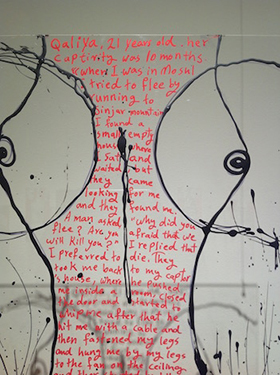 Qaliya, 21 years old. her
captivity was 10 months
when I was in Mosul
I tried to flee by
running to
Sinjar mountain
I found a
small empty
house where
I sat and
waited but
they came
looking for me
and they found me.
A man asked "why did you
flee? Are you afraid that we
will kill you?" I replied that
I preferred to die. They
took me back to my captor
's house, where he pushed
me inside a room, closed
the door and started to
whip me after that he
hit me with a cable and
then fastened my legs
and hung me by my legs
to the fan on the ceiling